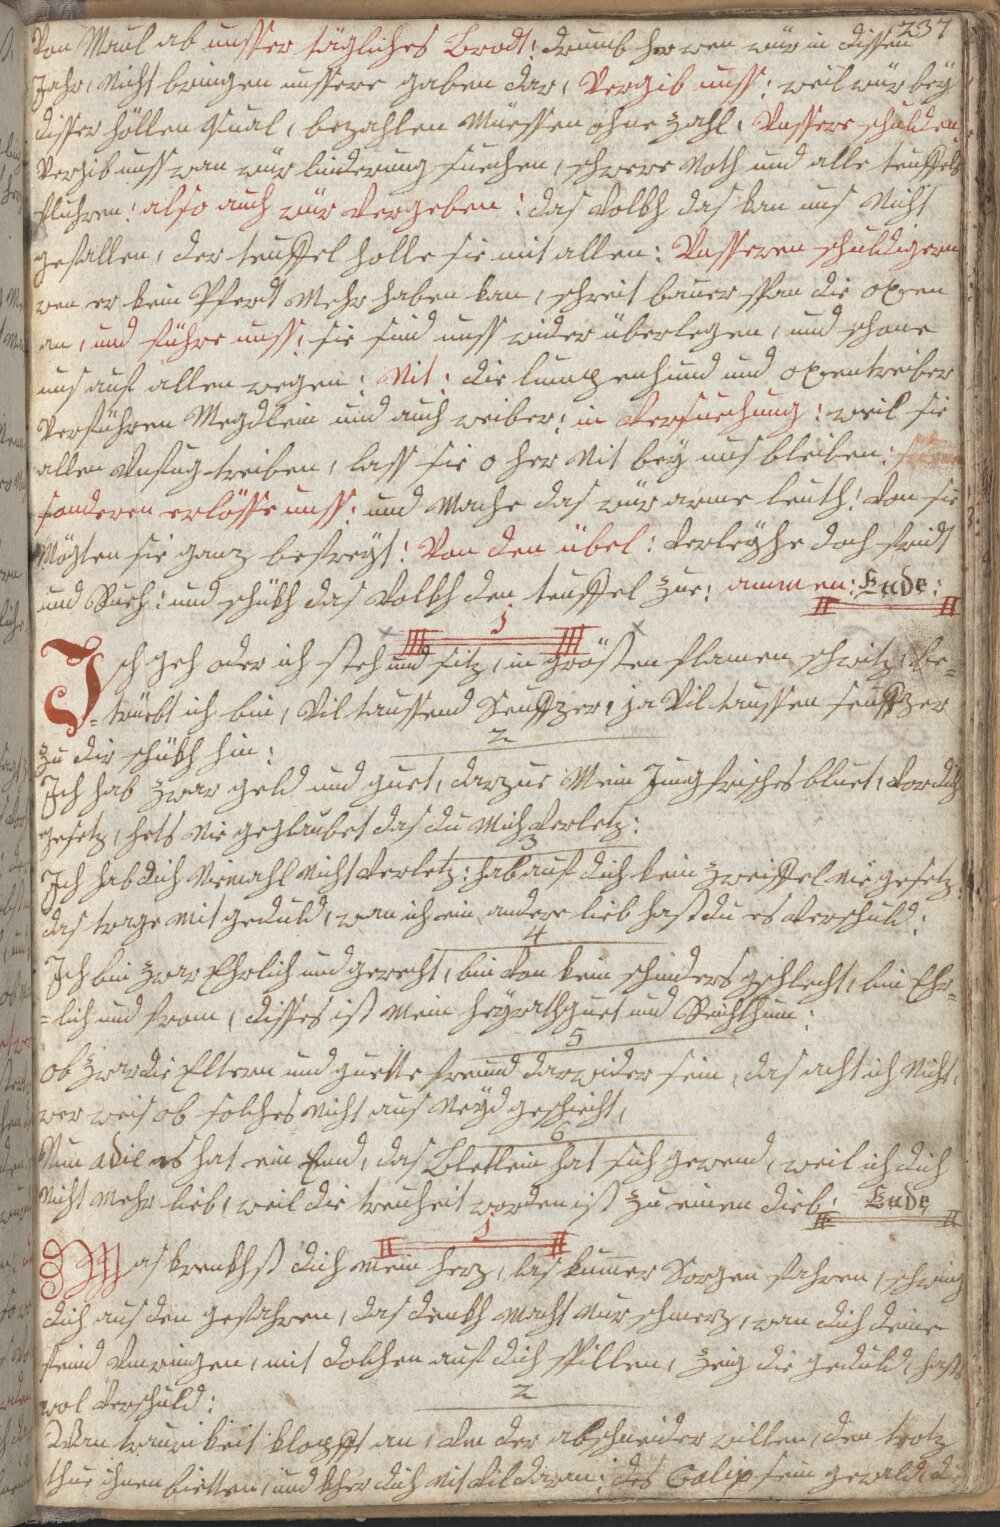 237
Von Maul ab unsser tägliches Brodt! drumb her wen wür in dissen
Jahr, Nicht bringen unssere gaben dar, Vergib unss! weil wür beÿ
disser höllen qual, bezahlen Müessen ohne zahl, Unssere schulden,
Vergib unss wan wür linderung suechen, schwere Noth und alle teuffels
flühren! also auch wür Vergeben! das Volkh das kan uns Nicht
gefallen, der teuffel holle sie mit allen: Unsseren schuldigern
wen er kein Pferdt Mehr haben kan, schreit bauer span die oxen
an, und führe unss! sie sind unss wider überlegen, und schone
uns auf allen wegen! Nit! die lumpenhund und oxentreiber
Verführen Megdlein und auch weiber! in Versuechung! weil sie
allen Unfug treiben, lass sie o her Nit beÿ uns bleiben:
sonderen erlösse unss! und Mache das wür arme leuth! Von sie
Mögten sie ganz befreÿt! Von den übel! Verleÿhe doch fridt
und Rueh! und schükh das Volkh den teuffel zue! ammen: Ende:
1
Ich geh oder ich steh und sitz, in grösten flamen schwitz, be-
-trüebt ich bin, Vil taussend Seuffzer, ja Vil taussen seuffzer
zu dir schükh hin:
2
Ich hab zwar geld und guet, darzue Mein Jung frisches bluet, Vor dich
gesetz, hets Nie geglaubet das du Mich Verletz:
3
Ich hab dich Niemahl Nicht Verletz: hab auf dich kein zweiffel Nie gesetz:
das trage Mit geduld, wan ich ein andere lieb hast du es Verschuld:
4
Ich bin zwar Ehrlich und gerecht, bin Von kein schinders gschlecht, bin Ehr-
-lich und from, disses ist Mein heÿrathguet und Reichthum:
5
ob zwar die Eltern und guette freund darwider sein, das acht ich Nicht,
wer weis ob solches Nicht aus Neÿd geschicht,
6
Nun adie es hat ein End, das Bletlein hat sich gewend, weil ich dich
Nicht Mehr lieb, weil die treuheit worden ist zu einen dieb: Ende
1
Was krenkhst dich Mein herz, las kummer Sorgen fahren, schwing
dich aus den gefahren, das denkh Macht Nur schmerz, wan dich deine
feind Umringen, mit dolchen auf dich spillen, zeig die geduld, hasts
wol Verschuld:
2
Wan traurikeit klopfft an, Um der abschneider willen, den trotz
thue ihnen bietten, und kher dich Nit Vil daran: des Calip sein gewald, die